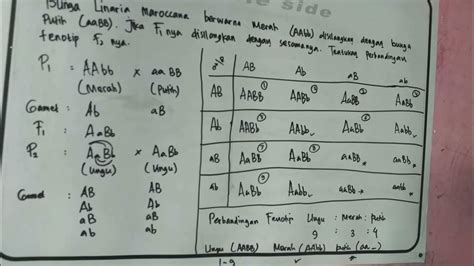 Bunga Linaria Maroccana berwarna Merah (AAbb) disilangkan dengan bunga
Putih (aaBB). Jika F1 nya disilangkan dengan sesamanya. Tentukan perbandingan
fenotip F2 nya.
P1 = AAbb x aaBB
(Merah) (Putih)
Gamet : Ab aB
F1 : AaBb
P2 = AaBb x AaBb
(Ungu) (Ungu)
Gamet : AB AB
Ab Ab
aB aB
ab ab
AB Ab aB ab
AB AABB 1 AABb 2 AaBB 3 AaBb 4
Ab AABb 5 AAbb AaBb 6 Aabb
aB AaBB 7 AaBb 8 aaBB aaBb
ab AaBb 9 Aabb aaBb aabb
Perbandingan Fenotip Ungu : Merah : putih
9 : 3 : 4
Ungu (AABB) Merah (AAbb) putih (aa__)
1-9